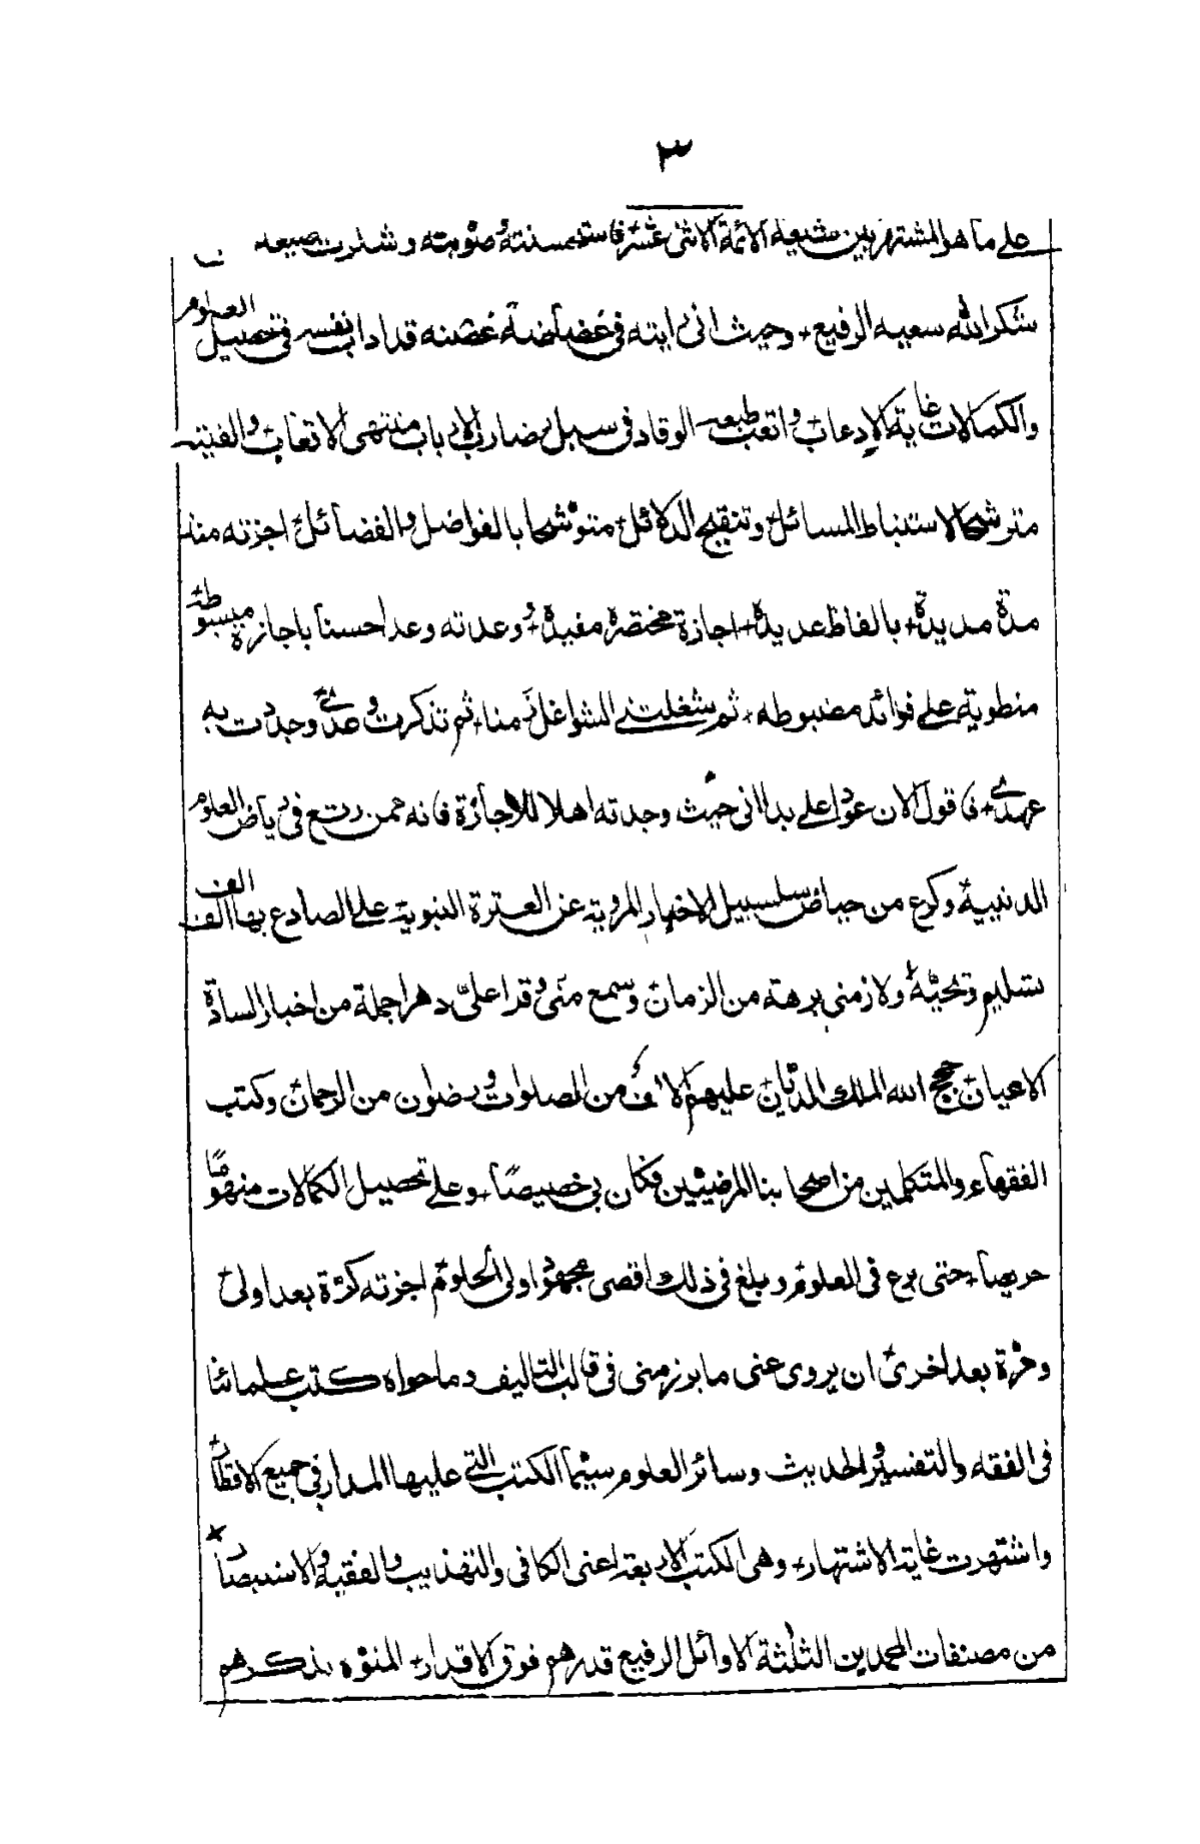 ٣
على ما هو المشتهر بين شيعة الائمة الاثنى عشر فاستحسنته وصوبته وشكرت صنيعه
شكر الله سعيه الرفيع + وحيث انى رايته فى غضاضة غصنه قد ادأب نفسه فى تحصيل العلوم
والكمالات غاية الادءاب + واتعب طبعه الوقاد فى سبل مضارب الارباب منتهى الاتعاب + والفيته
مترشحا لاستنباط المسائل + وتنقيح الدلائل + متوشحا بالفواضل والفضائل + اجزته منذ
مدة مديدة + بالفاظ عديدة + اجازة مختصرة مفيدة + ووعدته وعدا حسنا باجازة مبسوطة
منطوية على فوائد مضبوطه + ثم شغلتنى الشواغل زمنا + ثم تذكرت وعدى + وجددت به
عهدى + فاقول الان عودا على بدا انى حيث وجدته اهلا للاجازة فانه ممن رتع فى رياض العلوم
الدينية وكرع من حياض سلسبيل الاخبار المروية عن العترة النبوية على الصادع بها الف الف
تسليم وتحية + ولازمنى برهة من الزمان + وسمع منى وقرا علىّ دهرا جملة من اخبار السادة
الاعيان + حجج الله الملك الديان + عليهم الاف من الصلوات ورضوان من الرحمان + وكتب
الفقهاء والمتكلمين من اصحابنا المرضيين فكان بى خصيصًا + وعلى تحصيل الكمالات منهومًا
حريصا + حتى برع فى العلوم + وبلغ فى ذلك اقصى مجهود اولى الحلوم + اجزته كرّة بعد اولى +
ومرّة بعد اخرى + ان يروى عنى ما برز منى فى قالب التاليف وما حواه كتب علمائنا
فى الفقه والتفسير والحديث وسائر العلوم سيّما الكتب التى عليها المدار فى جميع الاقطار +
واشتهرت غاية الاشتهار + وهى الكتب الاربعة اعنى الكافى والتهذيب والفقيه والاستبصار +
من مصنفات المحمدين الثلثة الاوائل الرفيع قدرهم فوق الاقدار + المنوّه بذكرهم